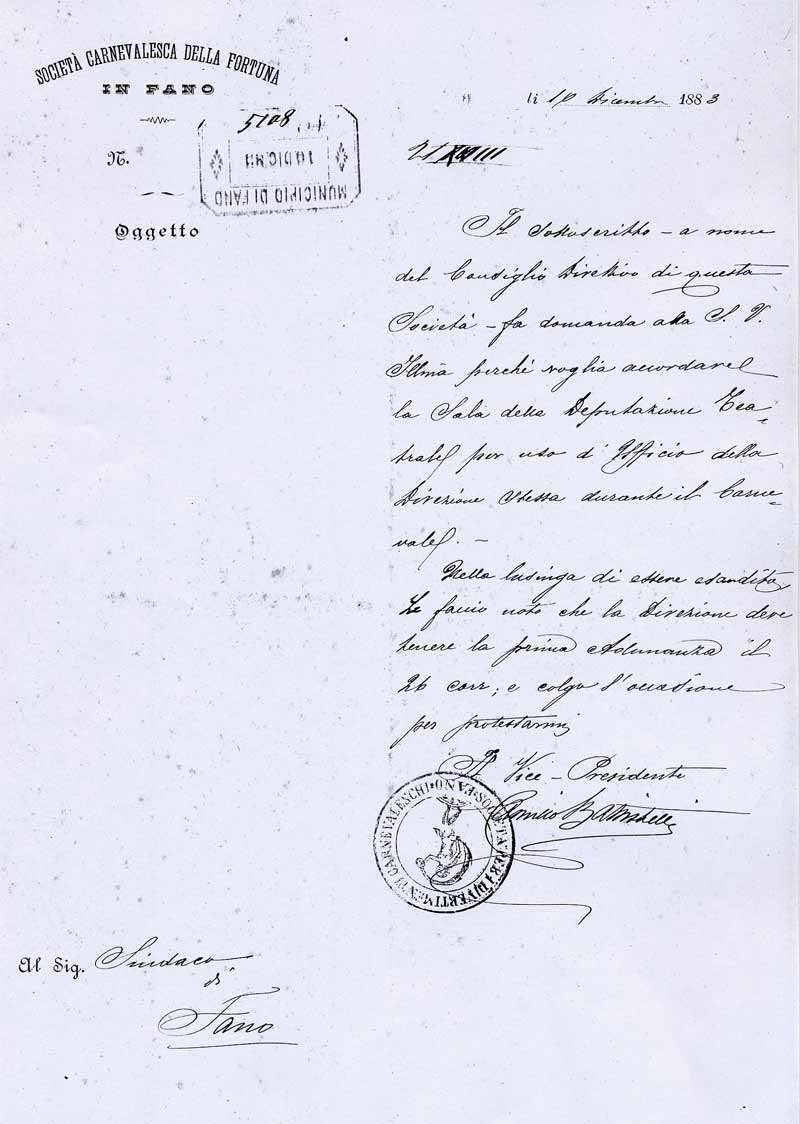 SOCIETÀ CARNEVALESCA DELLA FORTUNA
IN FANO
li 10 Dicembre 1883
5108
N.
MUNICIPIO DI FANO
10 DIC. 83
Oggetto
Il sottoscritto – a nome
del Consiglio Direttivo di questa
Società – fa domanda alla S. V.
Illma perchè voglia accordare
la Sala della Deputazione Tea=
trale per uso d'Ufficio della
Direzione stessa durante il Carne=
vale. –
Nella lusinga di essere esaudito,
Le faccio noto che la Direzione deve
tenere la prima Adunanza il
26 corr; e colgo l'occasione
per protestarmi
Il Vice – Presidente
SOCIETÀ PER I DIVERTIMENTI CARNEVALESCHI · FANO ·
Al Sig. Sindaco
di
Fano